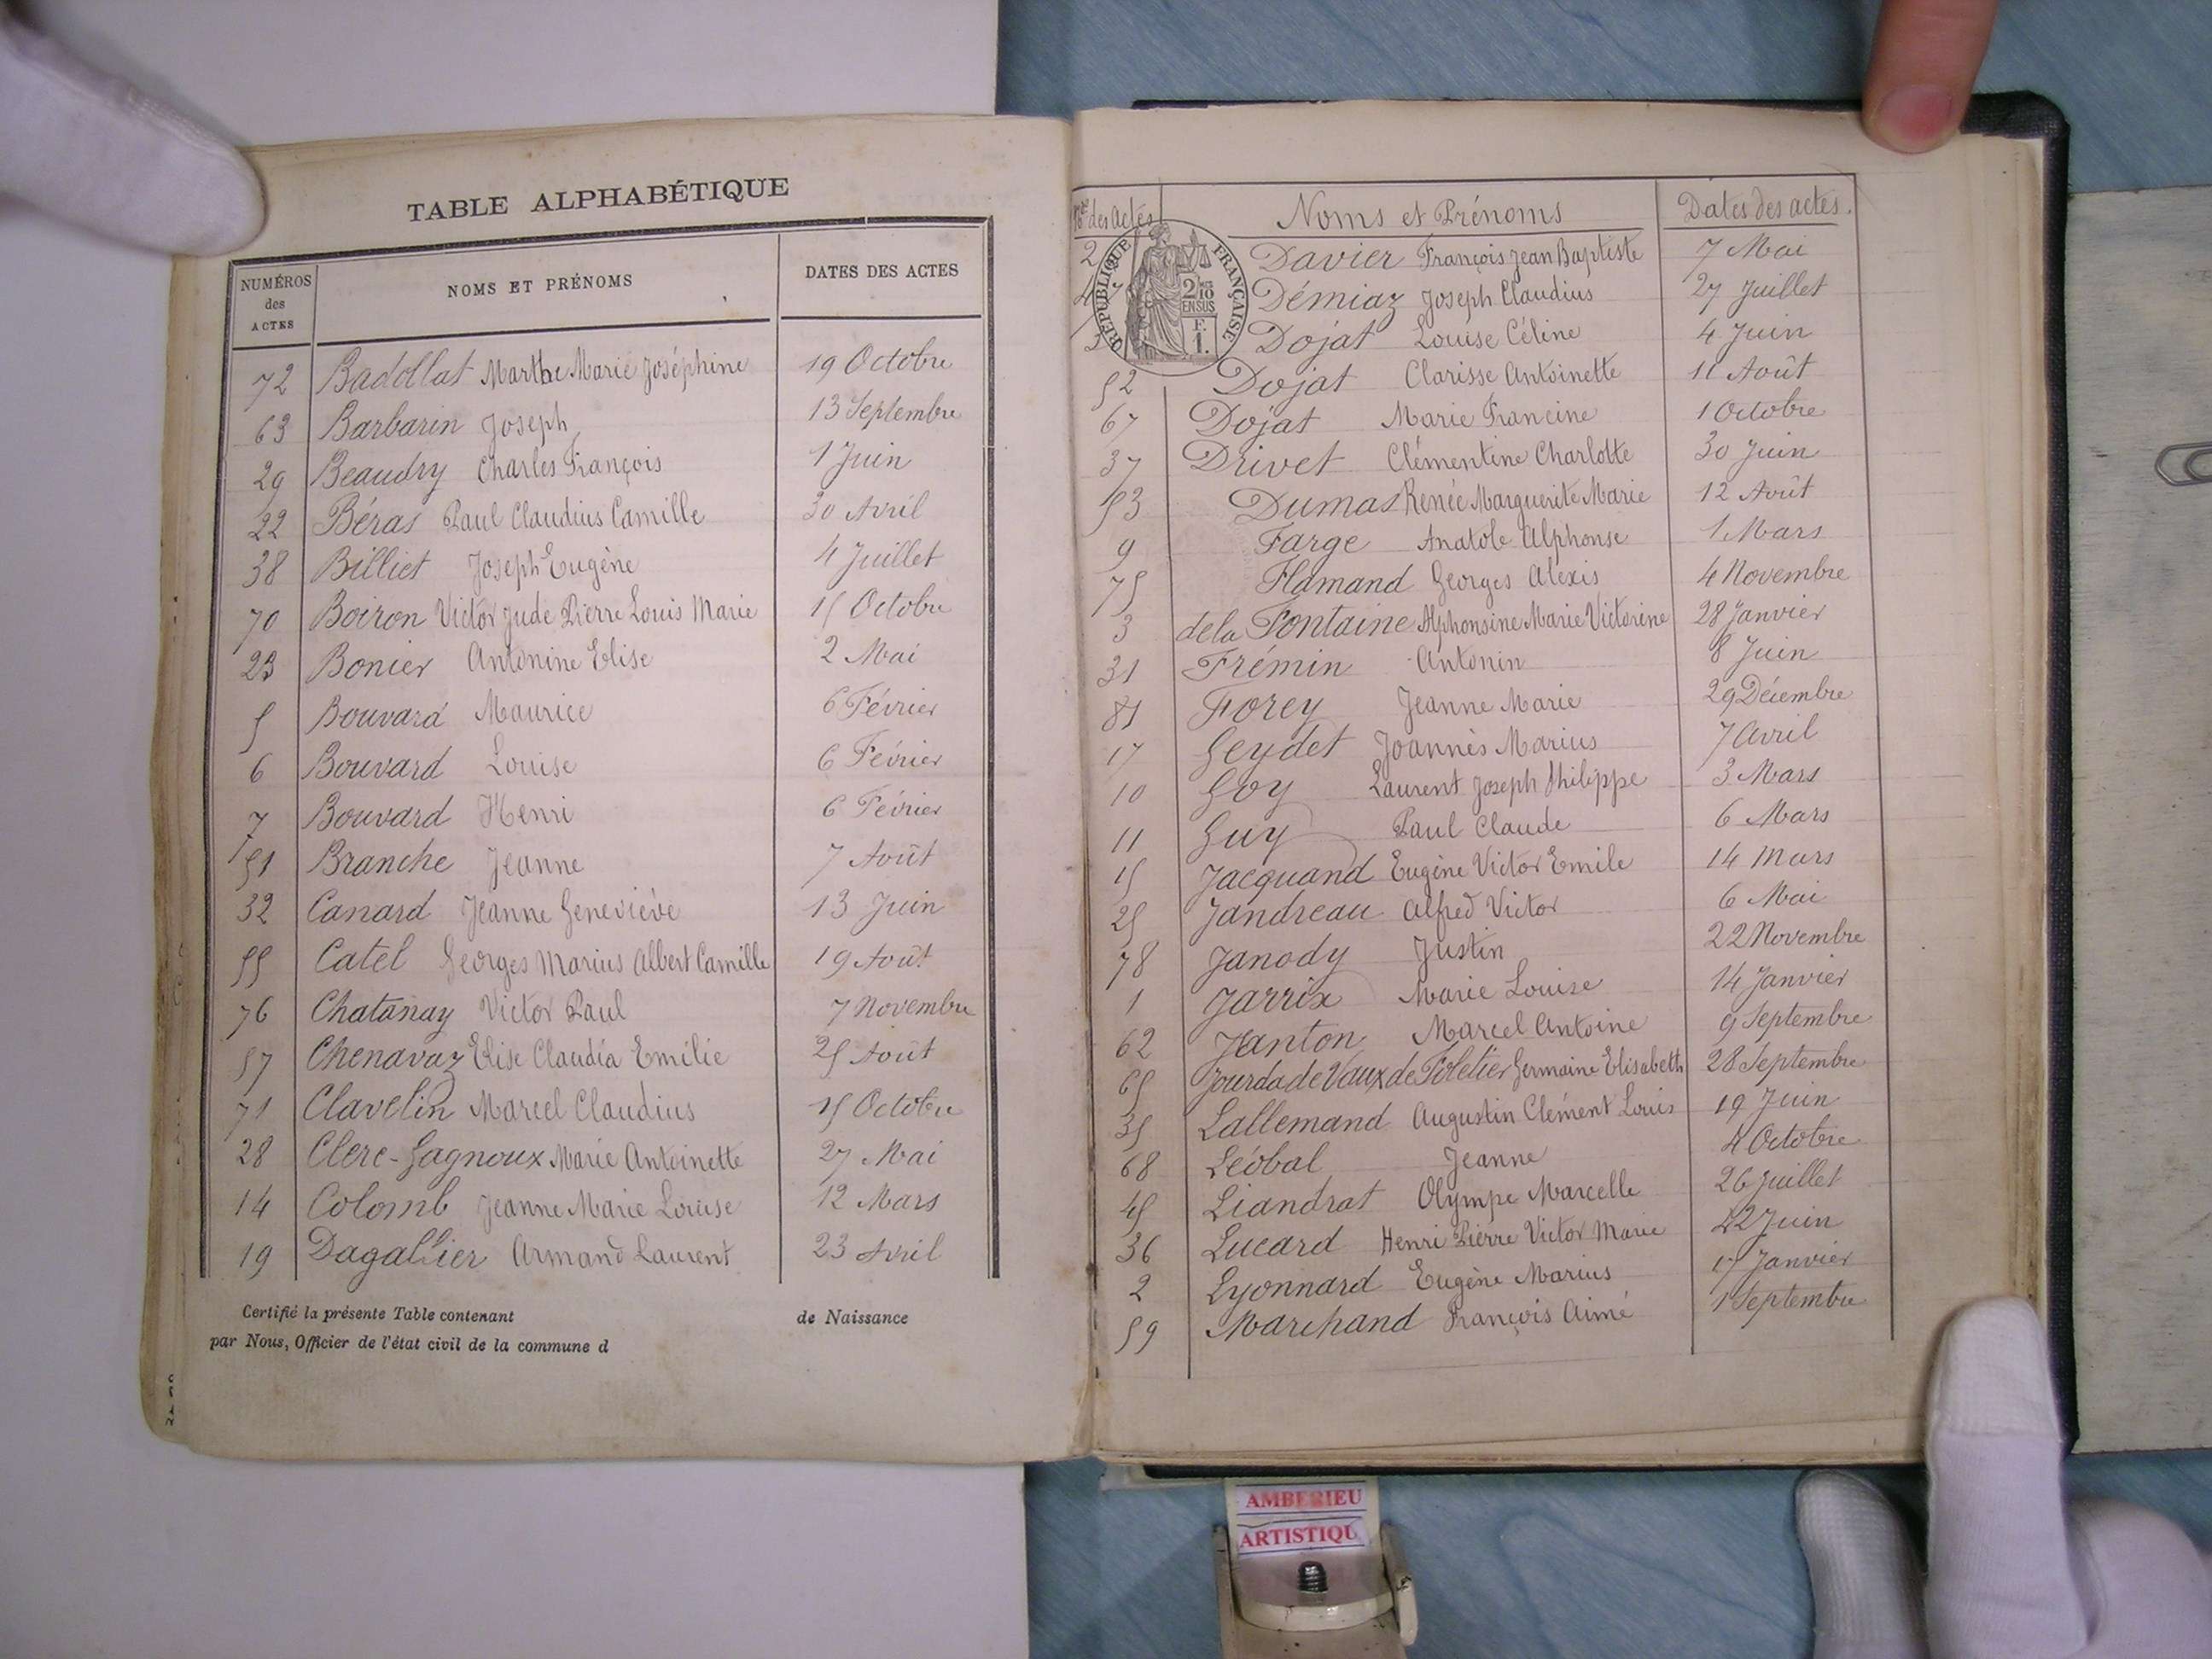 TABLE ALPHABÉTIQUE
NUMÉROS des ACTES NOMS ET PRÉNOMS DATES DES ACTES
72 Badollat Marthe Marie Joséphine 19 Octobre
63 Barbarin Joseph 13 Septembre
29 Beaudry Charles François 1 Juin
22 Béras Paul Claudius Camille 30 Avril
38 Billiet Joseph Eugène 4 Juillet
70 Boiron Victor Jude Pierre Louis Marie 15 Octobre
23 Bonier Antonine Elise 2 Mai
5 Bouvard Maurice 6 Février
6 Bouvard Louise 6 Février
7 Bouvard Henri 6 Février
51 Branche Jeanne 7 Août
32 Canard Jeanne Geneviève 13 Juin
55 Catel Georges Marius Albert Camille 19 Août
76 Chatanay Victor Paul 7 Novembre
57 Chenavaz Elise Claudia Emilie 25 Août
71 Clavelin Marcel Claudius 15 Octobre
28 Clerc-Gagnoux Marie Antoinette 27 Mai
14 Colomb Jeanne Marie Louise 12 Mars
19 Dagallier Armand Laurent 23 Avril
Certifié la présente Table contenant de Naissance
par Nous, Officier de l'état civil de la commune d
Nos des Actes Noms et Prénoms Dates des actes.
RÉPUBLIQUE FRANÇAISE
2/10 EN SUS
F. 1.
Davier François Jean Baptiste 7 Mai
Démiaz Joseph Claudius 27 Juillet
Dojat Louise Céline 4 Juin
52 Dojat Clarisse Antoinette 11 Août
67 Dojat Marie Francine 1 Octobre
37 Drivet Clémentine Charlotte 30 Juin
53 Dumas Renée Marguerite Marie 12 Août
9 Farge Anatole Alphonse 1 Mars
75 Flamand Georges Alexis 4 Novembre
3 de la Fontaine Alphonsine Marie Victorine 28 Janvier
31 Frémin Antonin 8 Juin
81 Forey Jeanne Marie 29 Décembre
17 Geydet Joannès Marius 7 Avril
10 Goy Laurent Joseph Philippe 3 Mars
11 Guy Paul Claude 6 Mars
15 Jacquand Eugène Victor Emile 14 Mars
25 Jandreau Alfred Victor 6 Mai
78 Janody Justin 22 Novembre
1 Jarrix Marie Louise 14 Janvier
62 Janton Marcel Antoine 9 Septembre
65 Jourda de Vaux de Foletier Germaine Elisabeth 28 Septembre
35 Lallemand Augustin Clément Louis 19 Juin
68 Léobal Jeanne 4 Octobre
45 Liandrat Olympe Marcelle 26 Juillet
36 Lucard Henri Pierre Victor Marie 22 Juin
2 Lyonnard Eugène Marius 17 Janvier
59 Marchand François Aimé 1 Septembre
AMBERIEU
ARTISTIQU